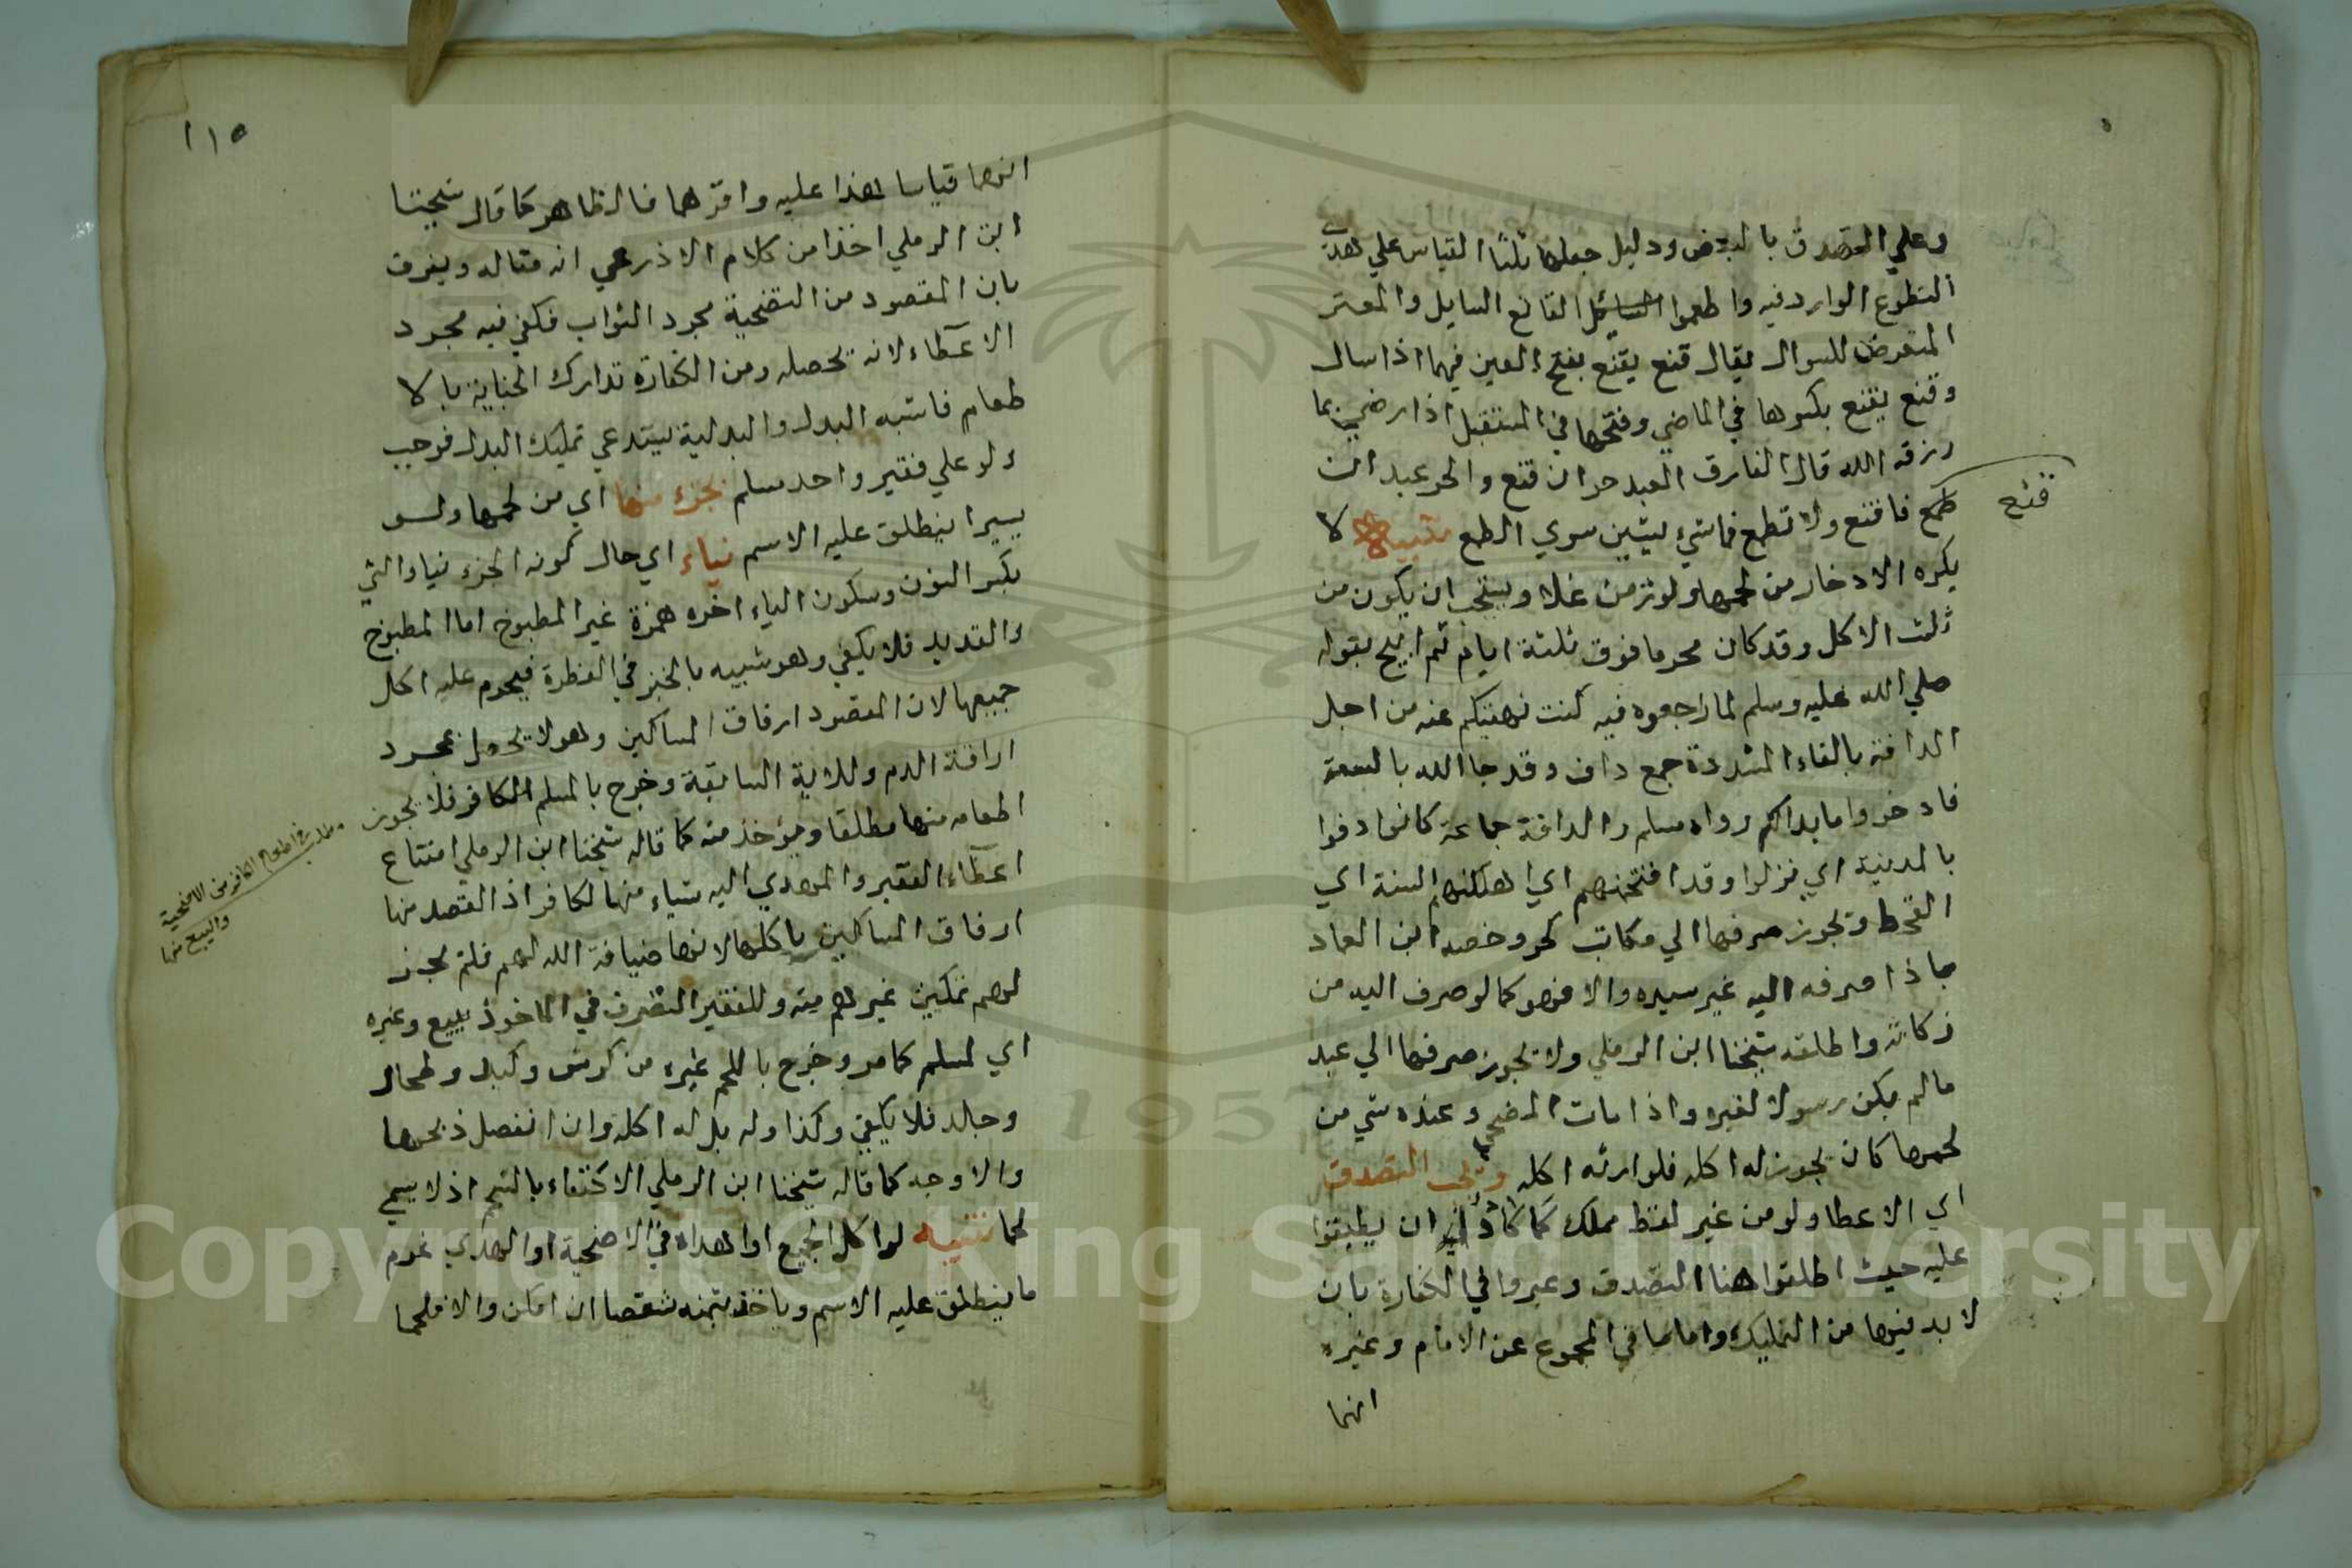 وعلي التصدق بالبعض ودليل جعلها ثلثا القياس علي هدي
التطوع الوارد فيه واطعموا القانع السايل والمعتر
المتعرض للسوال يقال قنع يقنع بفتح العين فيهما اذا سال
وقنع يقنع بكسرها في الماضي وفتحها في المستقبل اذا رضي بما
رزقه الله قال الفارق العبد حر ان قنع والحر عبد ان
طمع فاقنع ولا تطمع فما شيء يشين سوي الطمع تنبيه لا
قنع
يكره الادخار من لحمها ولو زمن غلا ويستحب ان يكون من
ثلث الاكل وقد كان محرما فوق ثلثة ايام ثم ابيح بقوله
صلي الله عليه وسلم لما راجعوه فيه كنت نهيتكم عنه من اجل
الدافة بالفاء المشددة جمع داف وقد جا الله بالسعة
فادخروا ما بدالكم رواه مسلم والدافة جماعة كانوا دفوا
بالمدينة اي نزلوا وقد افتحمتهم اي اهلكتهم السنة اي
القحط وتجوز صرفها الي مكاتب كحر وخصه ابن العماد
بماذا صرفه اليه غير سيده والا فهو كما لو صرف اليه من
زكاته واطلقه شيخنا ابن الرملي ولا تجوز صرفها الي عبد
مالم يكن رسولا لغيره واذا مات المضحي وعنده شي من
لحمها كان يجوز له اكله فلوارثه اكله ويجب التصدق
اي الاعطا ولو من غير لفظ مملك كما كاد ان يطبقوا
عليه حيث اطلقوا هنا التصدق وعبروا في الكفارة بان
لا بد فيها من التمليك واما ما في المجموع عن الامام وغيره
انهما
١١٥
انهما قياسا هذا عليه واقرهما فالظاهر كما قال شيخنا
ابن الرملي اخذا من كلام الاذرعي انه مقاله ويفرق
بان المقصود من التضحية مجرد الثواب فكفي فيه مجرد
الاعطاء لانه يحصله ومن الكفارة تدارك الجناية بالا
طعام فاشبه البدل والبدلية يستدعي تمليك البدل فوجب
ولو علي فقير واحد مسلم بجزء منها اي من لحمها ولو
يسيرا ينطلق عليه الاسم نياء اي حال كونه الجزء نياء والني
بكسر النون وسكون الياء اخره همزة غير المطبوخ اما المطبوخ
والقديد فلا يكفي وهو شبيه بالخبز في الفطرة فيحرم عليه اكل
جميعها لان المقصود ارفاق المساكين وهو لا يحصل بمجرد
اراقة الدم وللاية السابقة وخرج بالمسلم الكافر فلا يجوز
اطعامه منها مطلقا ويؤخذ منه كما قاله شيخنا ابن الرملي امتناع
مطلب في اطعام الكافر من الاضحية
والبيع منها
اعطاء الفقير والمهدي اليه شياء منها لكافر اذ القصد منها
ارفاق المساكين باكلها لانها ضيافة الله لهم فلم يجز
لهم تمكين غيرهم منه وللفقير التصرف في الماخوذ ببيع وغيره
اي لمسلم كما مر وخرج باللحم غيره من كرش وكبد وطحال
وجلد فلا يكفي وكذا ولد بل له اكله وان انفصل ذبحها
والاوجه كما قاله شيخنا ابن الرملي الاكتفاء بالشحم اذ لا يسمي
لحما تنبيه لو اكل الجميع او اهداه في الاضحية او الهدي غرم
ما ينطلق عليه الاسم وياخذ بثمنه شقصا ان امكن والا فلحما
Copyright © King Saud University
1957